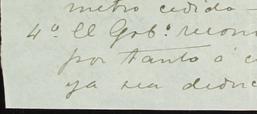 metro cedido —
4º El Gobº recono
por tanto á c
ya sea deduc